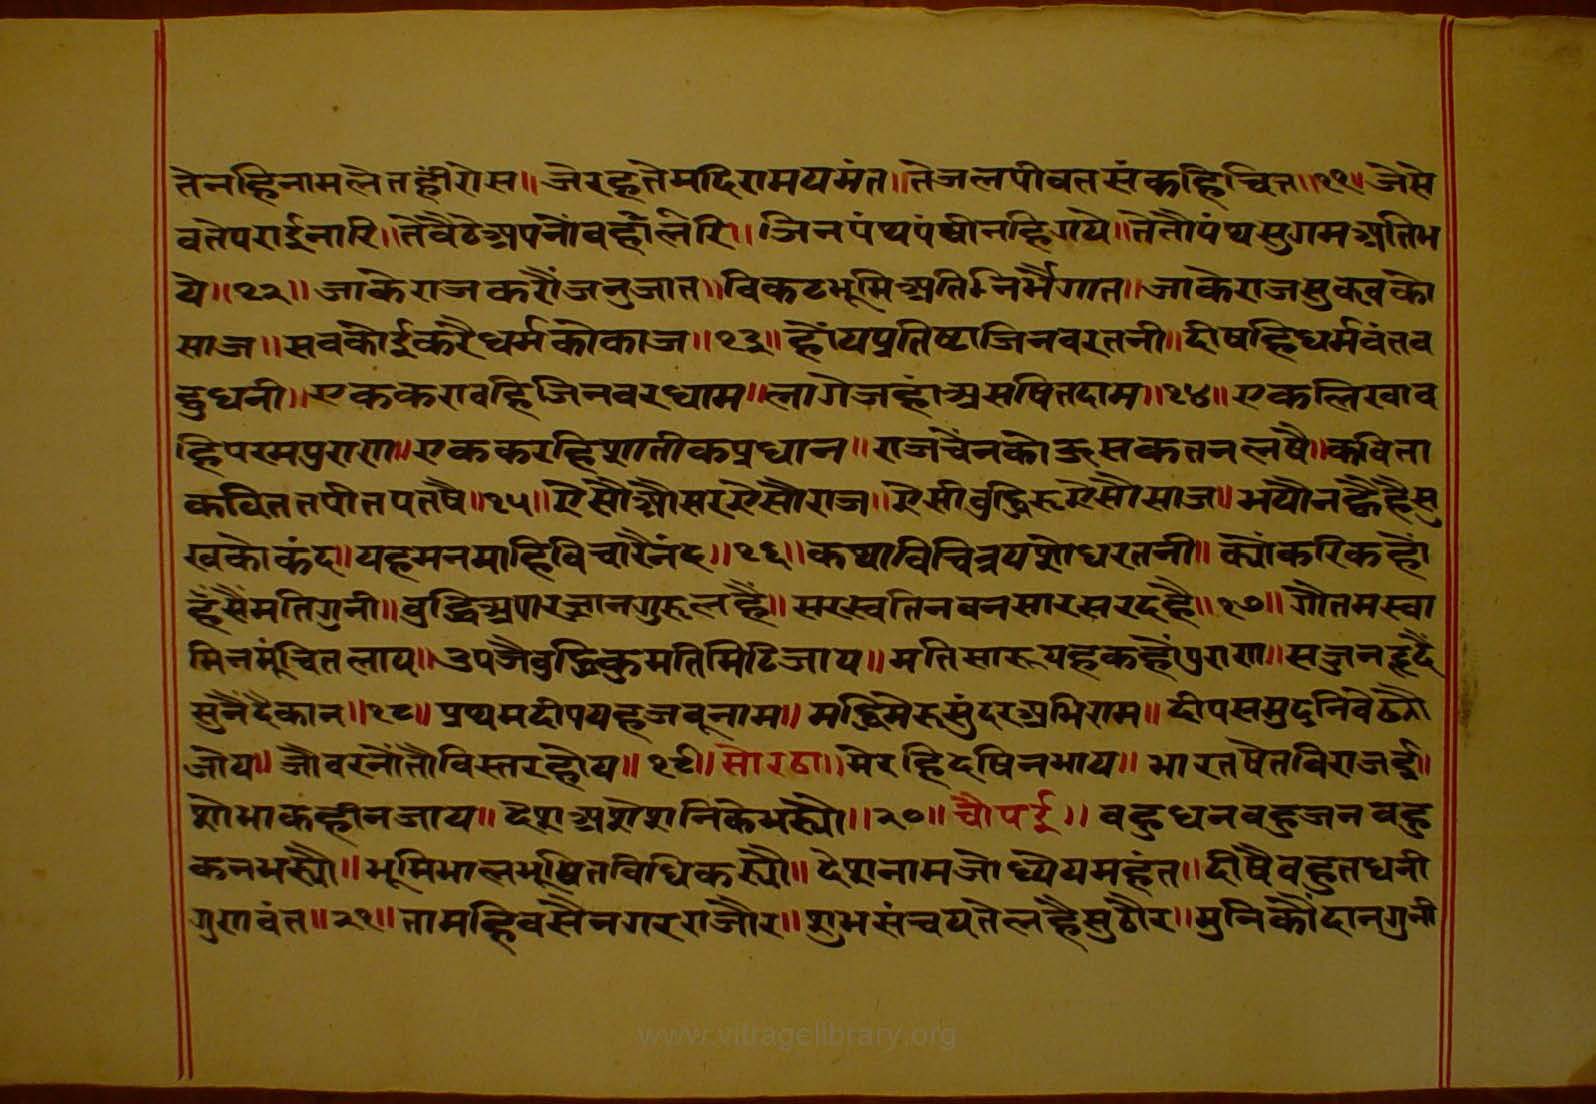 तेनहिनामलेतहीरोस॥ जेरहतेमदिरामयमंत॥ तेजलपीवतसंकहिचित॥११॥ जेसे
वतेपराईनारि॥ तेवैठेअपनौंवहौंलेरि॥ जिनपंथपंथीनहिगये॥ तेतौपंथसुगमअतिभ
ये॥१२॥ जाकेराजकरौंजनुजात॥ विकटभूमिअतिनिर्भैगात॥ जाकेराजसुकवको
साज॥ सवकोईकरैधर्मकोकाज॥१३॥ हौंयप्रतिष्टाजिनवरतनी॥ दीषहिधर्मवंतव
हुधनी॥ एककरावहिजिनवरधाम॥ लागेजहांअसषितदाम॥१४॥ एकलिखाव
हिपरमपुराण॥ एककरहिशातीकप्रधान॥ राजचैंनकोऊसकतनलषै॥ कविता
कवितितपीतपतषै॥१५॥ ऐसौऔसरऐसौराज॥ ऐसीवुद्धिरूऐसौसाज॥ भयौनह्वैहैसु
खकोकंद॥ यहमनमाहिविचारैनंद॥१६॥ कथाविचित्रयशोधरतनी॥ क्योंकरिकहौं
हंसैंमतिगुनी॥ वुद्धिअपारज्ञानगुरूलहैं॥ सरस्वतिनवनसारसरदहै॥१७॥ गौतमस्वा
मिनमूंचितलाय॥ उपजैवुद्धिकुमतिमिटिजाय॥ मतिसारूयहकहौंपुराण॥ सज्जनहृदैं
सुनैंदैकान॥१८॥ प्रथमदीपयहजंवूनाम॥ मद्धिमेरूसुंदरअभिराम॥ दीपसमुद्रनिवेढ्यौ
जोय॥ जौवरनौंतौविस्तरहोय॥१९॥ सोरठा॥ मेरहिदषिनभाय॥ भारतषेतविराजई॥
शोभाकहीनजाय॥ देशअशेशनिकेभर्‍यो॥२०॥ चौपई॥ वहुधनवहुजनवहु
कनभर्‍यौ॥ भूमिभालभूषितविधिकर्‍यौ॥ देशनामजोध्येयमहंत॥ दीषैवहुतधनी
गुणवंत॥२१॥ तामहिवसैनगरराजौर॥ शुभसंचयतेलहैसुठौर॥ मुनिकौंदानगुनी
www.vitragelibrary.org